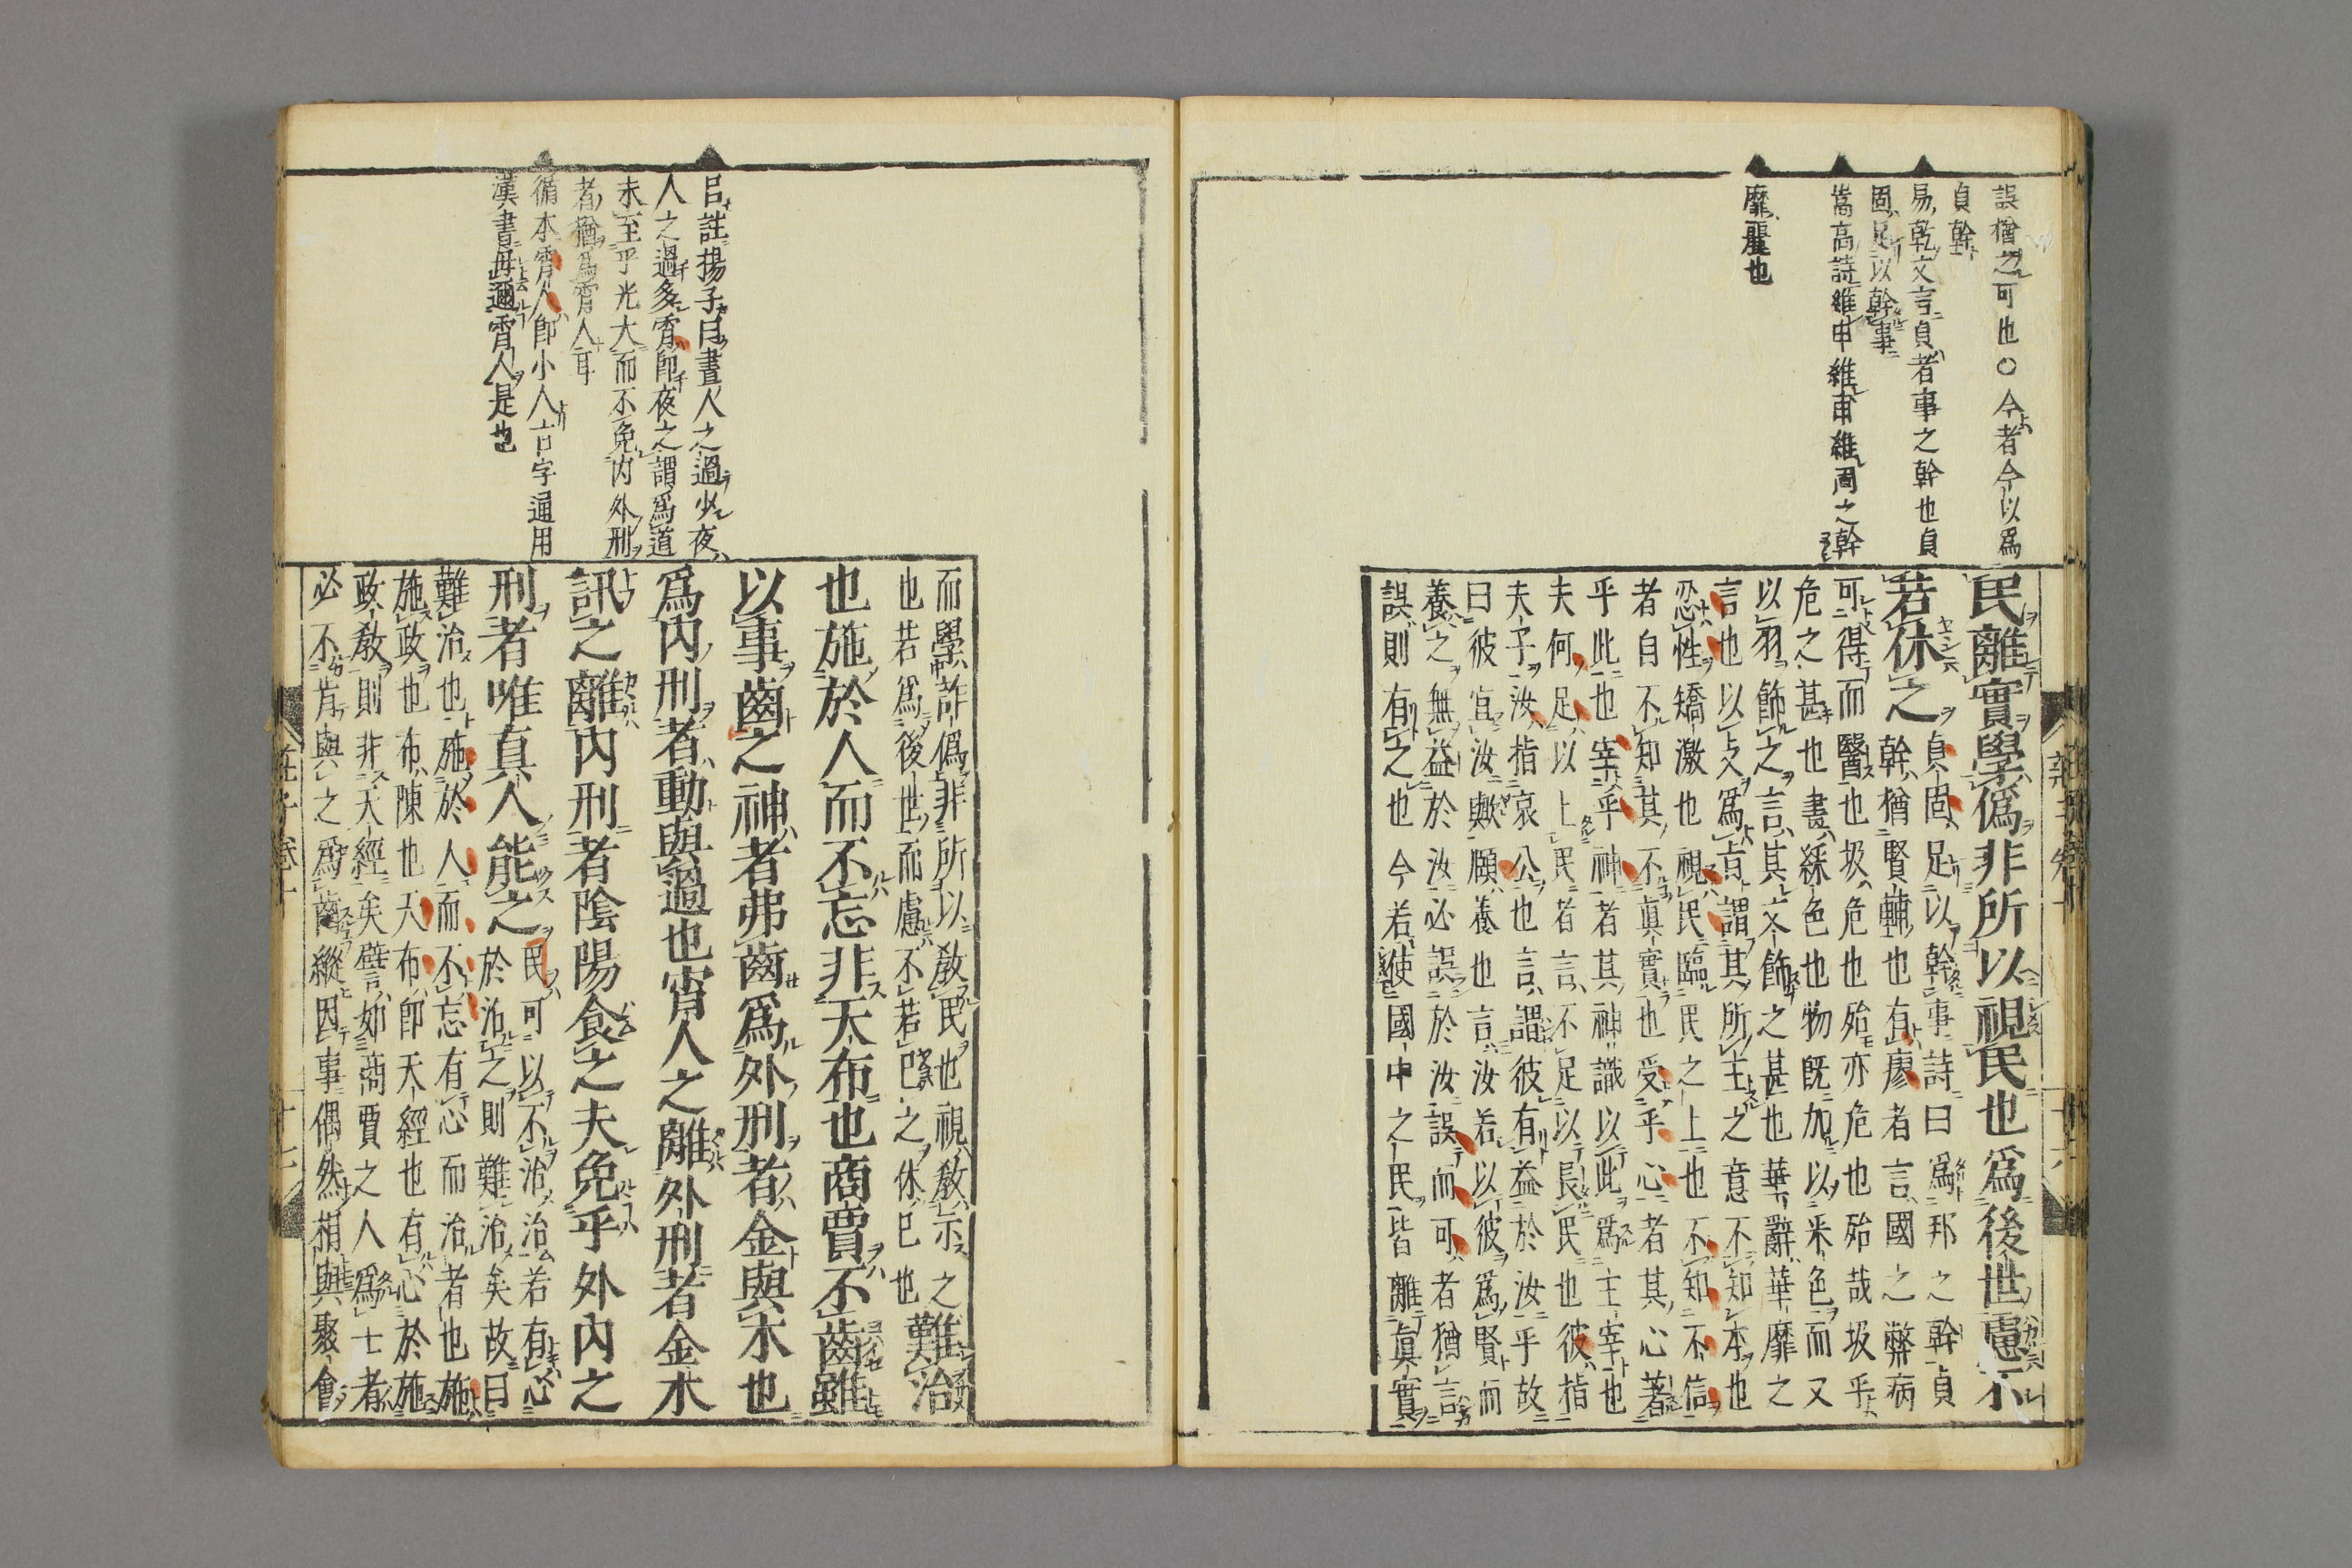 誤猶之可也〇今者今以爲
貞幹
易乾文言貞者事之幹也貞
固足以幹事
嵩高詩維申維甫維周之幹
靡麗也
民離實學偽非所以視民也爲後世慮不
若休之
貞固足以幹事詩曰爲邦之幹貞
幹猶賢輔也有廖者言國之弊病
可得而醫也圾危也殆亦危也殆哉圾乎
危之甚也畫綵色也物既加以采色而又
以羽飾之言其文飾之甚也華辭華靡之
言也以支爲旨謂其所主之意不知本也
忍性矯激也視民臨民之上也不知不信
者自不知其不眞實也受乎心者其心著
乎此也宰乎神者其神識以此爲主宰也
夫何足以上民者言不足以長民也彼指
夫子汝指哀公也言謂彼有益於汝乎故
曰彼宜汝歟願養也言汝若以彼爲賢而
養之無益於汝必誤於汝誤而可者猶言
誤則有之也今若使國中之民皆離眞實
雜篇
而學詐偽非所以敎民也視敎示之
也若爲後世而慮不若已之休已也
難治
也施於人而不忘非天布也商賈不齒雖
以事齒之神者弗齒爲外刑者金與木也
爲內刑者動與過也宵人之離外刑者金木
訊之離內刑者陰陽食之夫免乎外內之
刑者唯真人能之
民可以不治治若有心
於治之則難治矣故曰
難治也施於人而不忘有心而治者也施
施政也布陳也天布卽天經也有心於施
政敎則非天經矣譬言如商賈之人爲士者
必不肯與之爲齒縱因事偶然相與聚會
呂註揚子曰晝人之過少夜
人之過多宵卽夜之謂爲道
未至乎光大而不免內外刑
者猶爲宵人耳
循本宵人卽小人古字通用
漢書毋邇宵人是也
莊子卷十